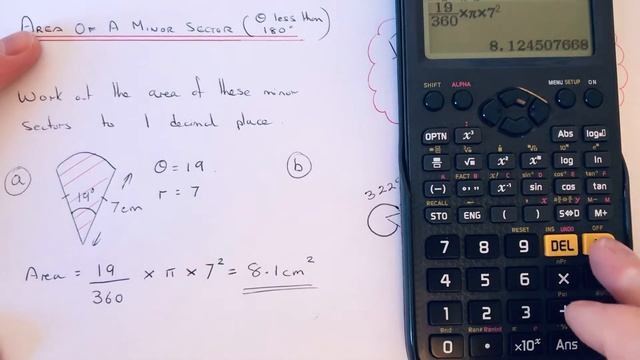 AREA OF A MINOR SECTOR (θ less than 180°)
Work out the area of these minor
sectors to 1 decimal place.
a
θ = 19
r = 7
19°
7cm
b
Area = 19/360 × π × 7² = 8.1cm²
19/360 ×π×7²
8.124507668
SHIFT ALPHA MENU SETUP ON
OPTN Abs
log ln
(-) sin cos tan
RECALL
STO ENG ( ) S⇔D M+
RESET INS UNDO OFF
7 8 9 DEL
4 5 6 ×
1 2 3
0 • ×10ˣ Ans